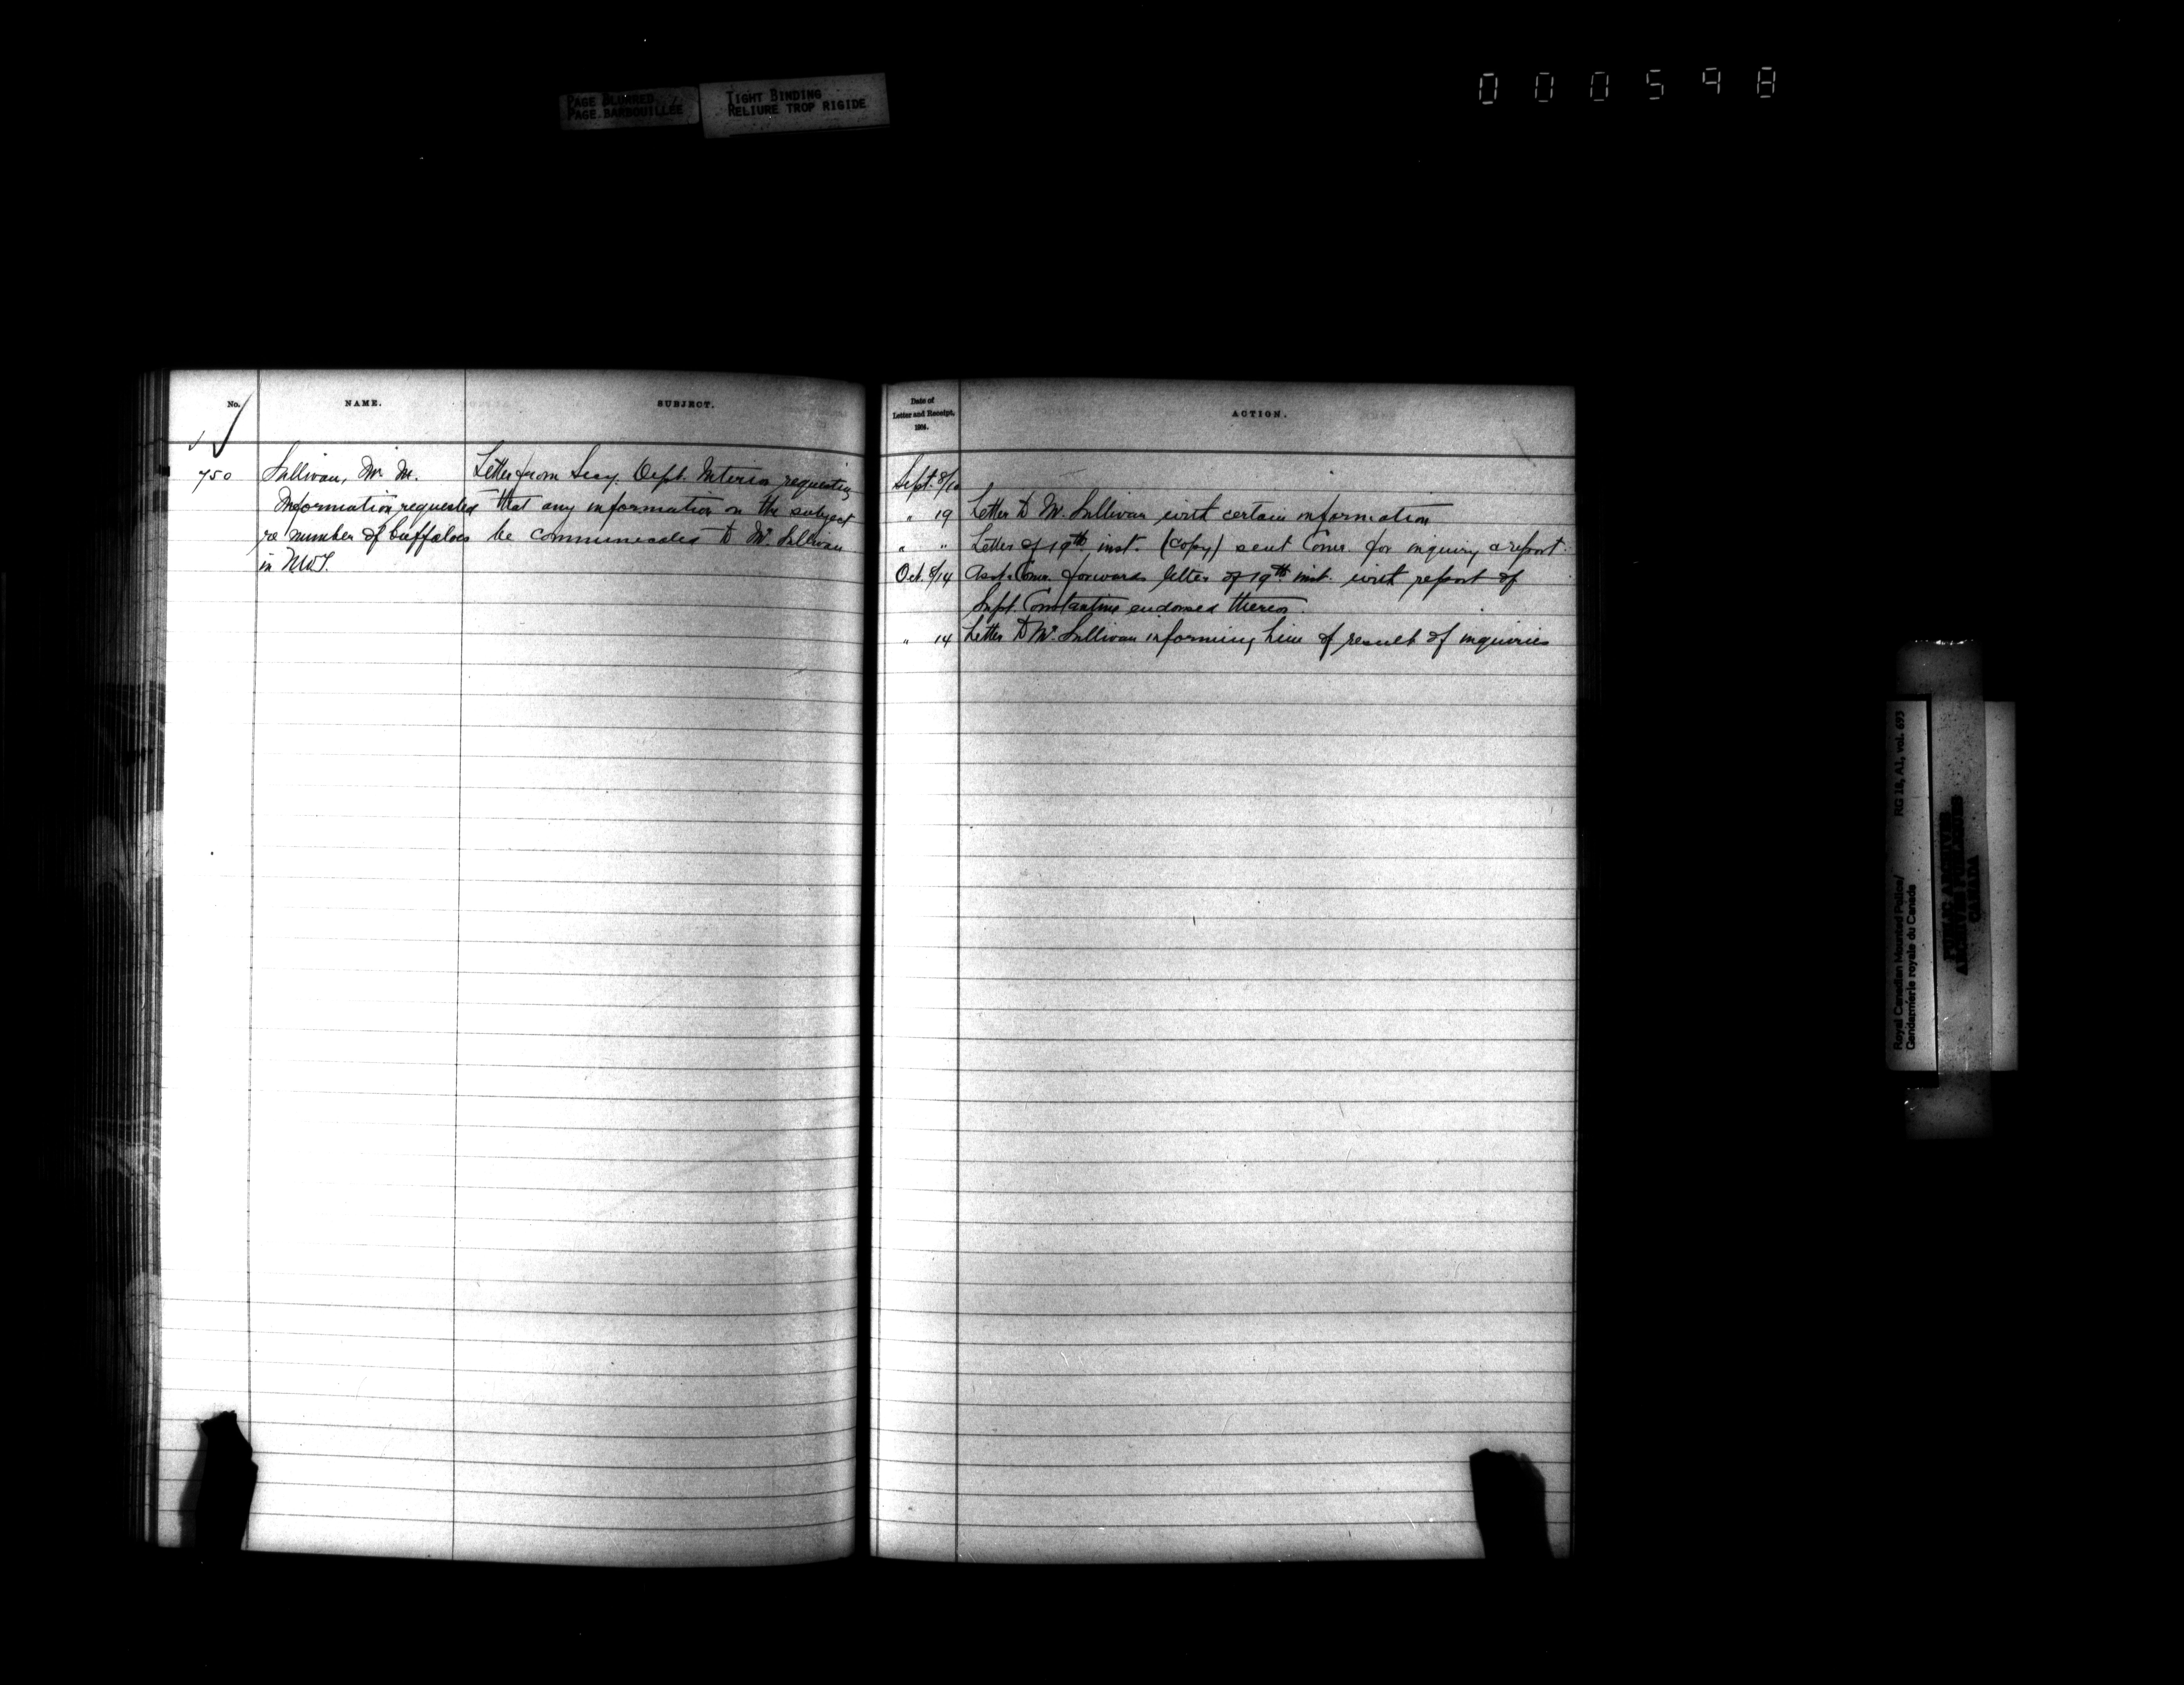 PAGE BLURRED
PAGE BARBOUILLÉE
TIGHT BINDING
RELIURE TROP RIGIDE
000598
No.
NAME.
SUBJECT.
750
Sullivan, Mr. M.
Information requested
re number of buffaloes
in NWT.
Letter from Secy. Dept. Interior requesting
that any information on the subject
be communicated to Mr. Sullivan
Date of
Letter and Receipt.
ACTION.
Sept. 8/10
" 19 Letter to Mr. Sullivan with certain information
" " Letter of 19th inst. (copy) sent Comr. for inquiry & report.
Oct. 8/14 Asst. Comr. forwards letter of 19th inst. with report of
Supt. Constantine endorsed thereon.
" 14 Letter to Mr. Sullivan informing him of result of inquiries
Royal Canadian Mounted Police/
Gendarmerie royale du Canada
RG 18, A1, vol. 693
PUBLIC ARCHIVES
ARCHIVES PUBLIQUES
CANADA